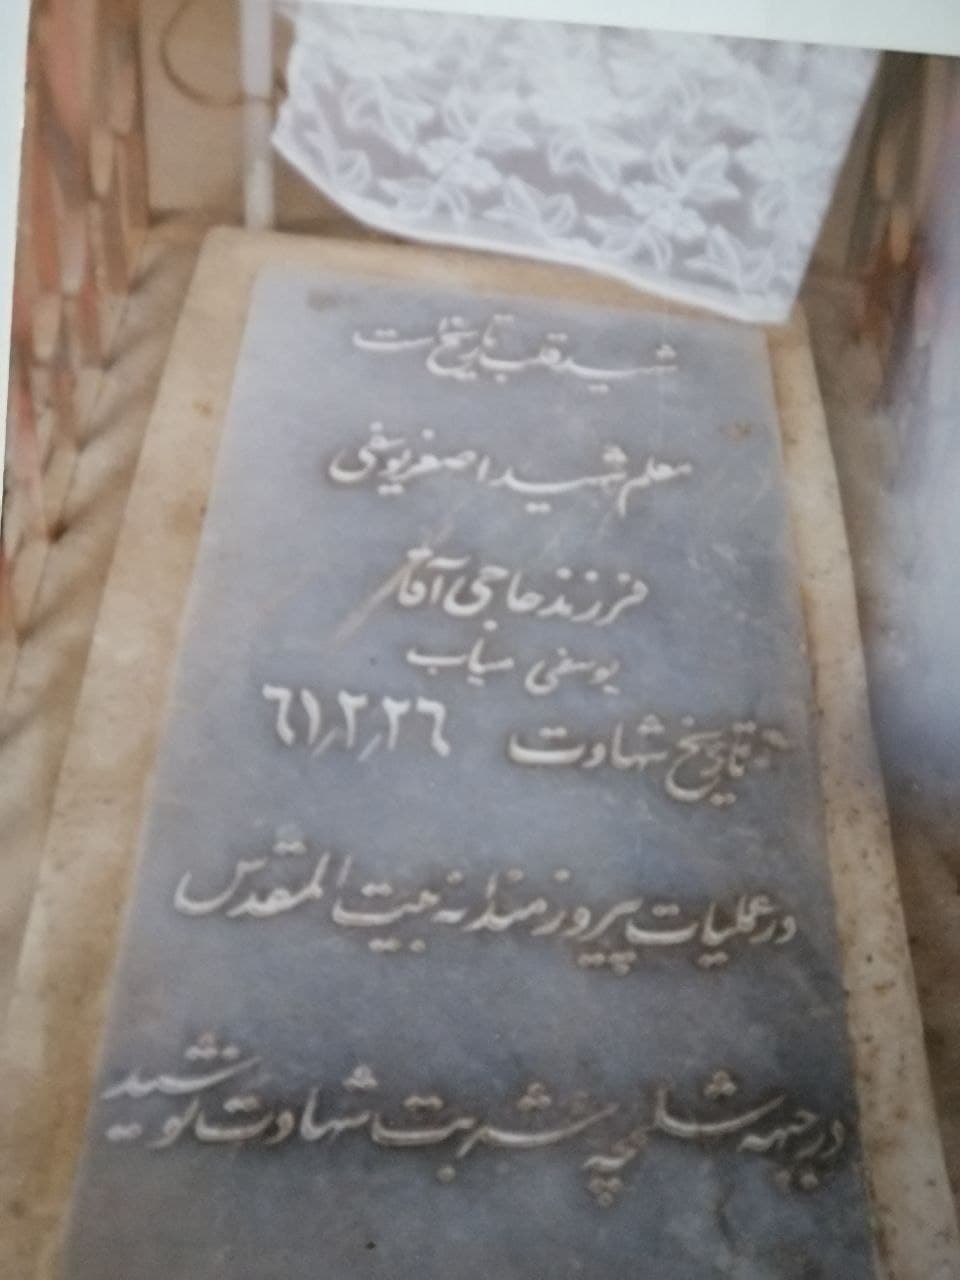 شهید قلب تاریخ است
معلم شهید اصغر یوسفی
فرزند حاجی آقا
یوسفی میاب
تاریخ شهادت ٦١٫٢٫٢٦
در عملیات پیروزمندانه بیت المقدس
در جبهه شلمچه شربت شهادت نوشید